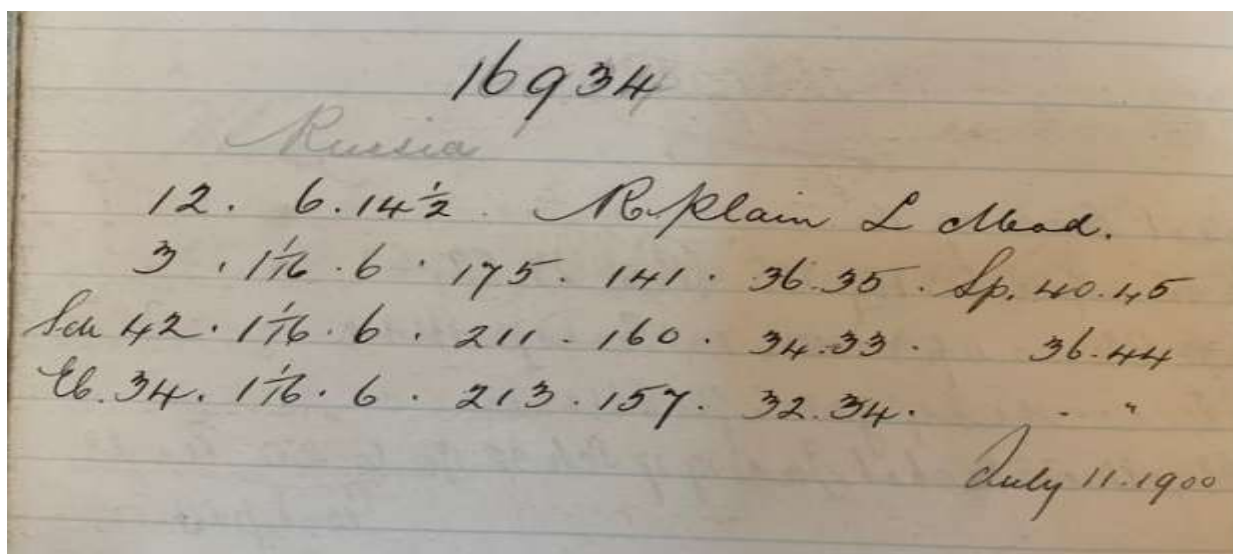 16934
Russia
12. 6.14½. R. plain L Mead.
3 . 1 1/16 . 6 . 175 . 141 . 36.35 . Sp. 40.45
Sch 42 . 1 1/16 . 6 . 211 . 160 . 34.33 . 36.44
Eb. 34 . 1 1/16 . 6 . 213 . 157 . 32.34 . . "
July 11.1900